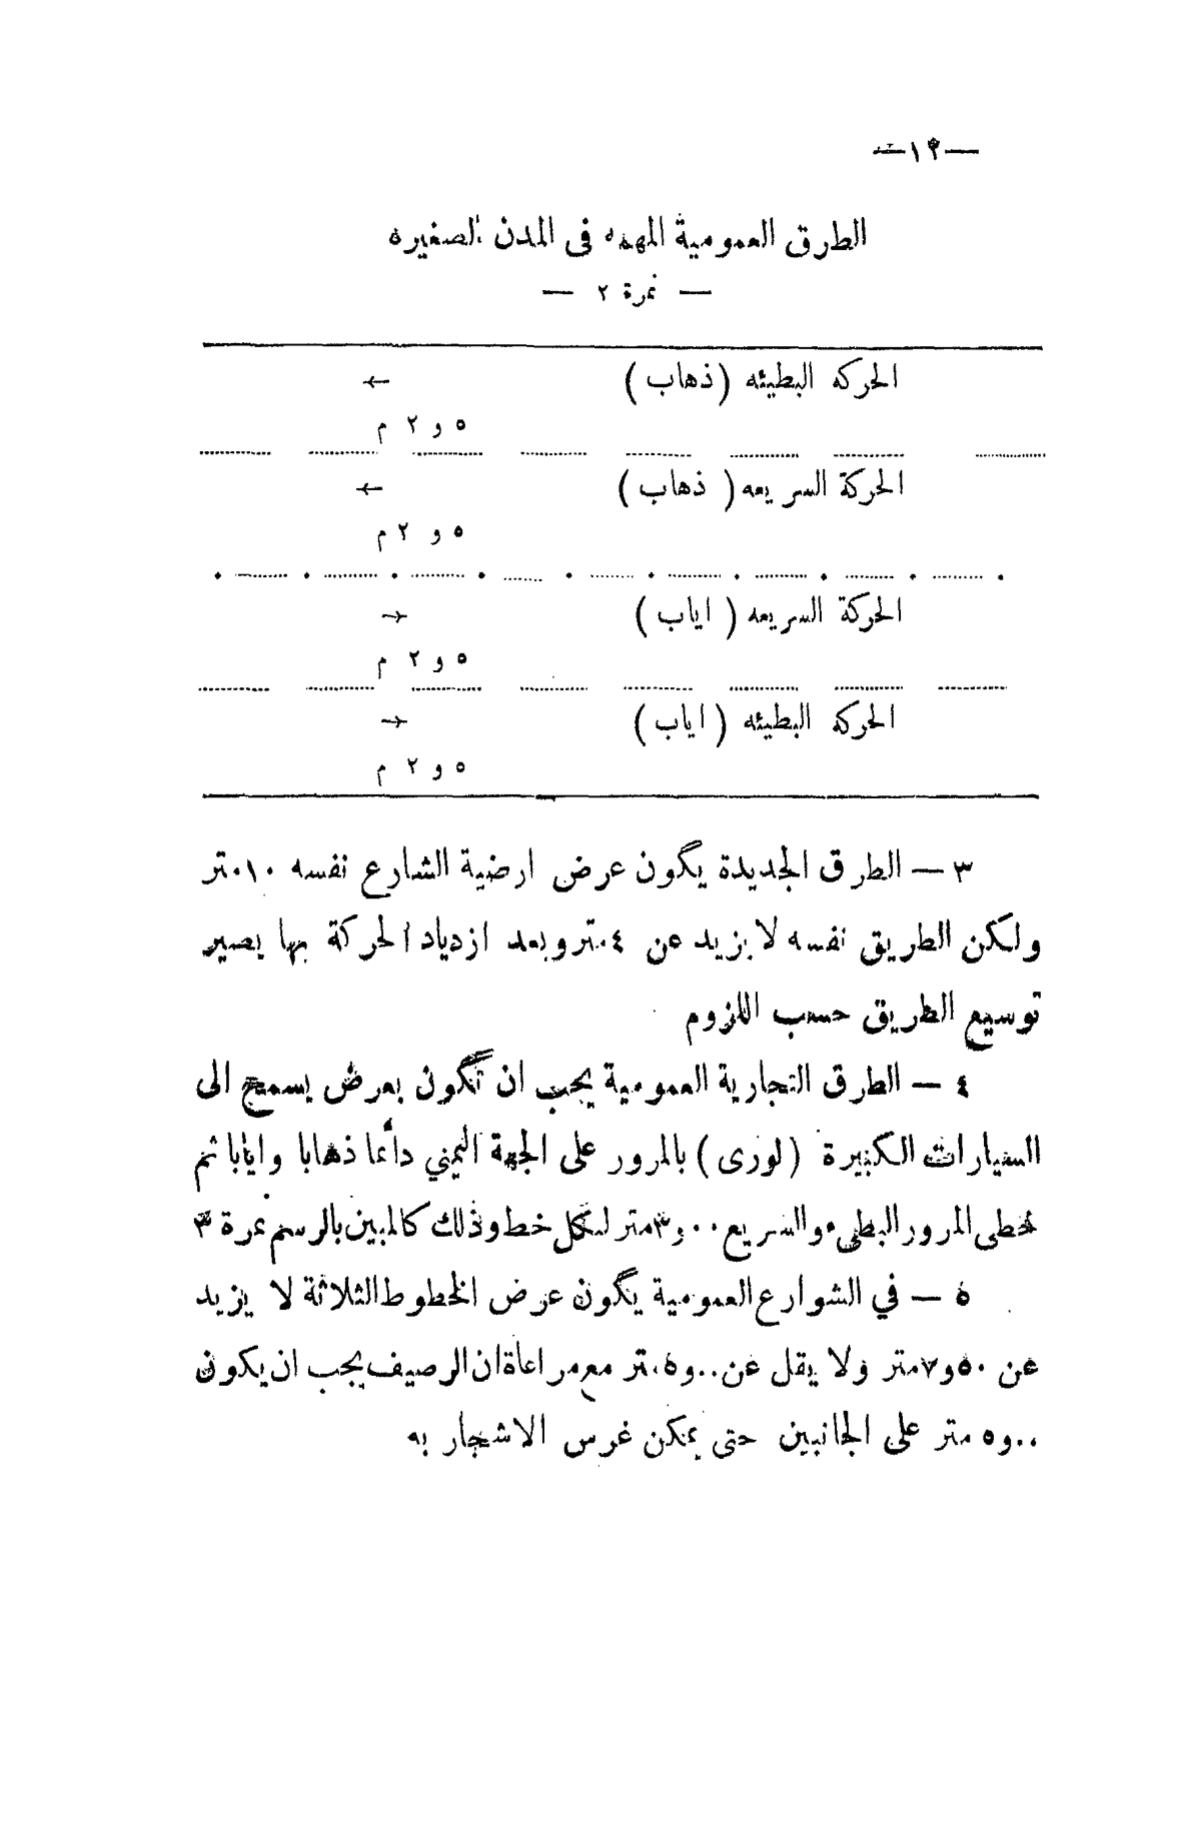 —١٢—
الطرق العمومية المهمه فى المدن الصغيره
— نمرة ٢ —
الحركه البطيئه (ذهاب) ←
٥ و ٢ م
الحركة السريعه ( ذهاب) ←
٥ و ٢ م
الحركة السريعه ( اياب ) →
٥ و ٢ م
الحركه البطيئه ( اياب ) →
٥ و ٢ م
٣ — الطرق الجديدة يكون عرض ارضية الشارع نفسه ١٠متر
ولكن الطريق نفسه لا يزيد عن ٤ متر وبعد ازدياد الحركة بها يصير
توسيع الطريق حسب اللزوم
٤ — الطرق التجارية العمومية يجب ان تكون بعرض يسمح الى
السيارات الكبيرة (لورى) بالمرور على الجهة اليمني دائما ذهابا وايابا ثم
لخطى المرور البطىء والسريع ٠٠و٣متر لكل خط وذلك كالمبين بالرسم نمرة ٣
٥ — في الشوارع العمومية يكون عرض الخطوط الثلاثة لا يزيد
عن ٥٠و٧متر ولا يقل عن ٠٠و٥متر مع مراعاة ان الرصيف يجب ان يكون
٠٠و٥ متر على الجانبين حتى يمكن غرس الاشجار به